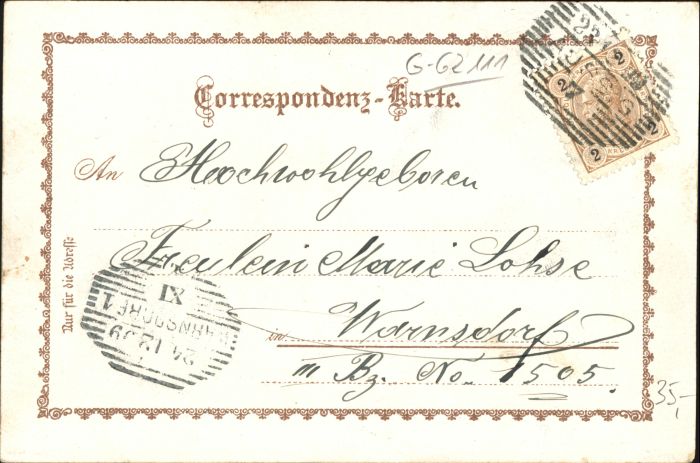 G-GZ 111
Correspondenz-Karte.
An Hochwohlgeboren
Fräulein Marie Lohse
in Warnsdorf
III Bz. No. 1505.
Nur für die Adresse
WARNSDORF 1
XI
35,-
2
2
2
2